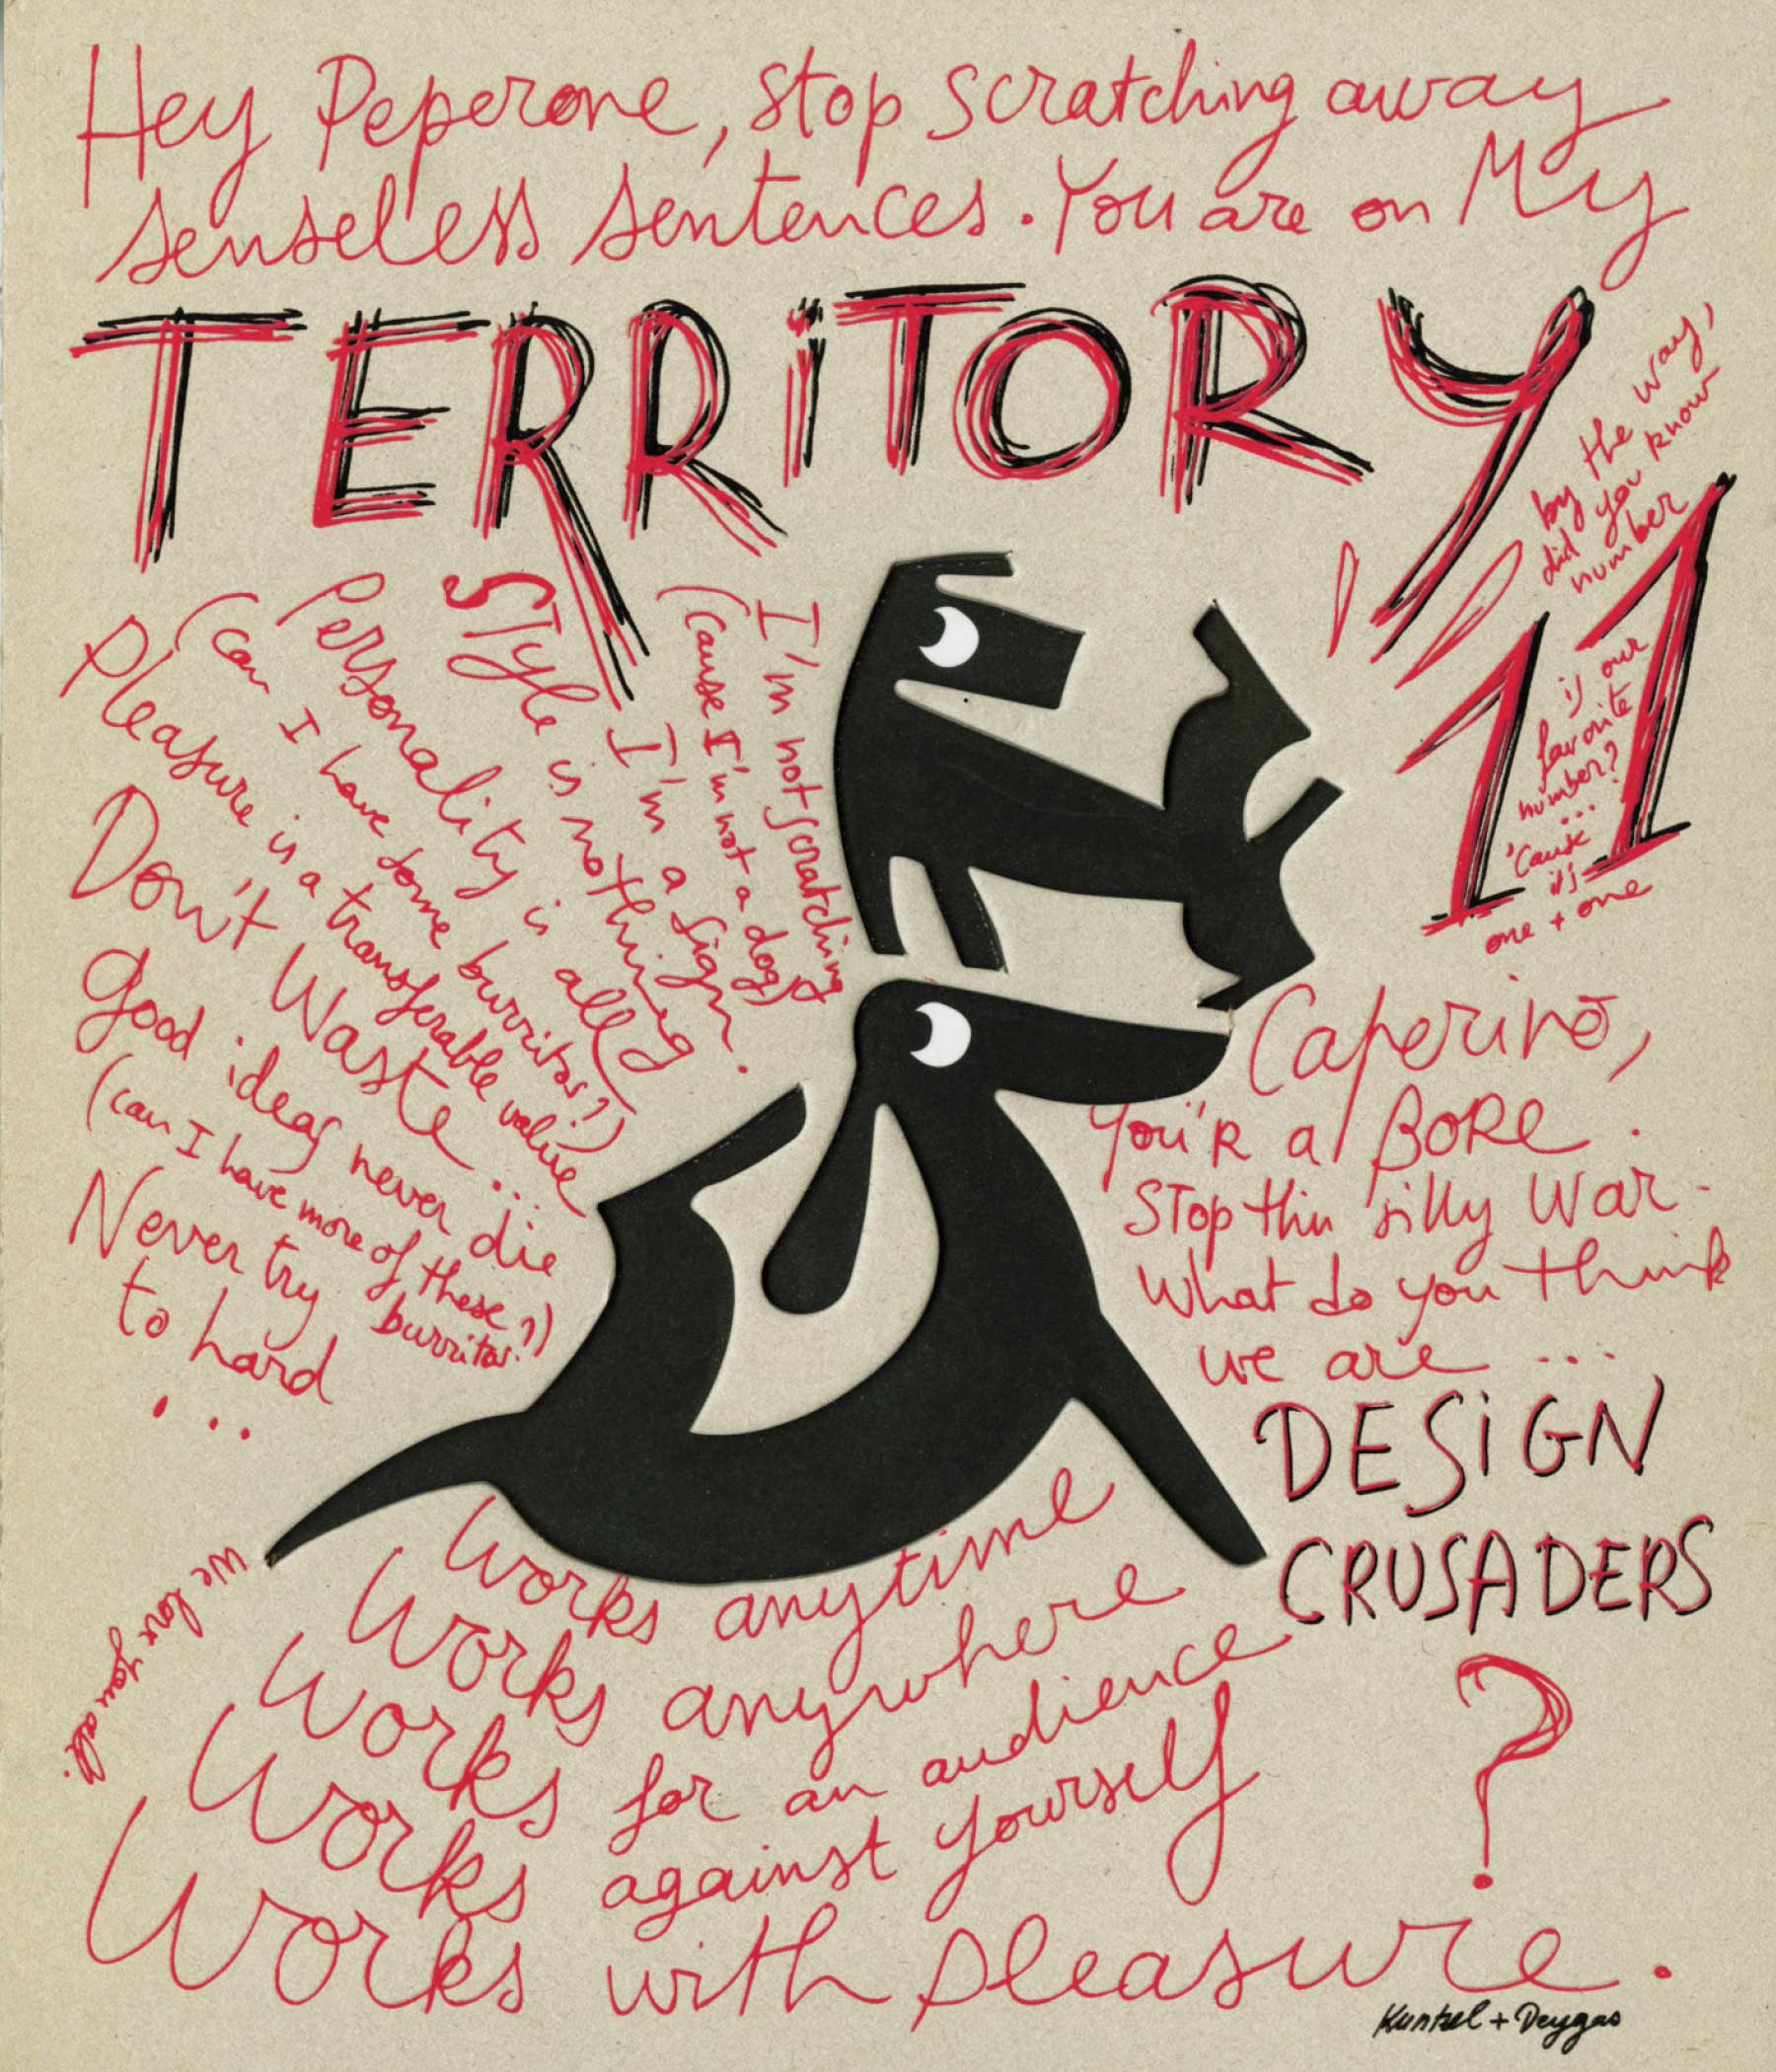 Hey Peperone, stop scratching away
senseless sentences. You are on My
TERRiTORY
by the way,
did you know
number
11
is our
favorite
number?
...
'Cause
it's
one + one
I'm not scratching
(cause I'm not a dog)
I'm a sign.
STyle is nothing
Personality is all
(can I have some burritos?)
Pleasure is a transferable value
Don't Waste...
good ideas never die
(can I have more of these
burritos?)
Never try
to hard
...
Caperino,
You'R a BORe.
STop this silly War.
What do you think
we are ...
DESiGN
CRUSADERS
?
we love you all
Works anytime
Works anywhere
Works for an audience
Works against yourself
Works with pleasure.
Kuntzel + Deygas